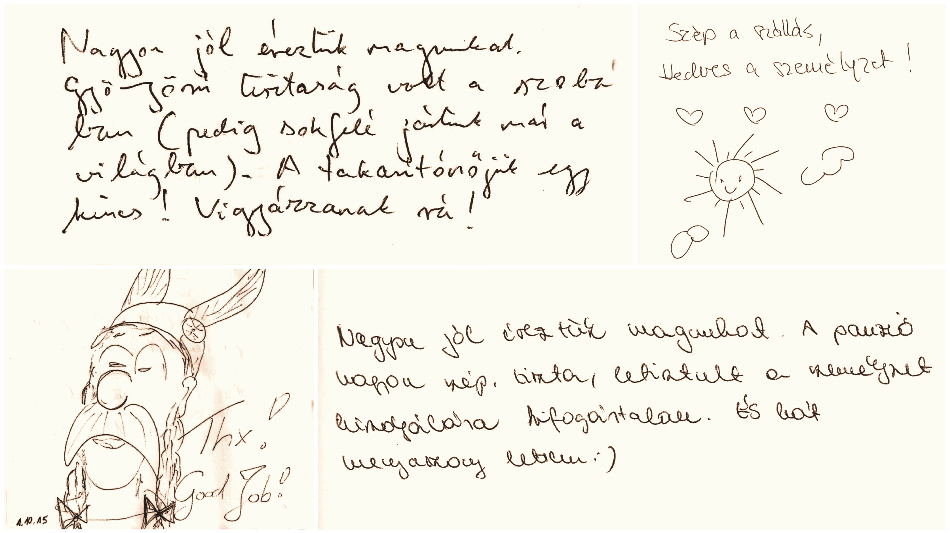 Nagyon jól éreztük magunkat.
Gyö-zöni tisztaság volt a szobá
ban (pedig sokfelé jártunk már a
világban). A takarítónőjük egy
kincs! Vigyázzanak rá!
Szép a szállás,
Kedves a személyzet!
Thx!
Good Job!
1.10.15
Nagyon jól éreztük magunkat. A panzió
nagyon szép, tiszta, letisztult a személyzet
kiszolgálása kifogástalan. És hát
lettem :)